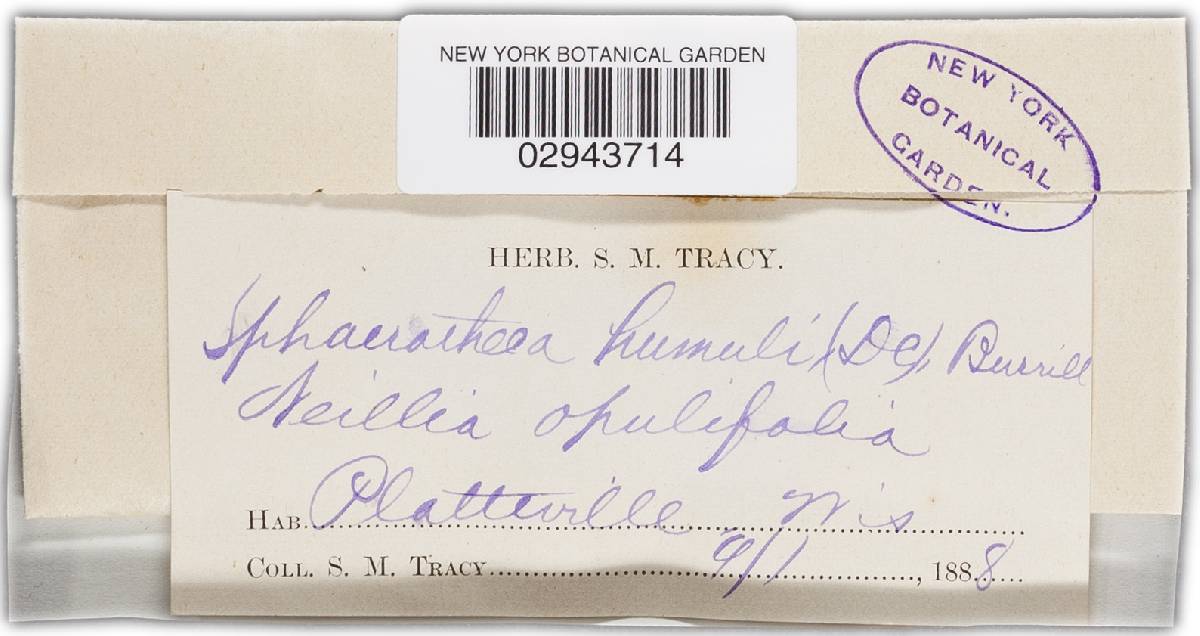 NEW YORK BOTANICAL GARDEN
02943714
NEW YORK
BOTANICAL
GARDEN.
HERB. S. M. TRACY.
Sphaerotheca humuli (DC), Burrill
Neillia opulifolia
HAB. Platteville Wis
COLL. S. M. TRACY. 9/1, 1888